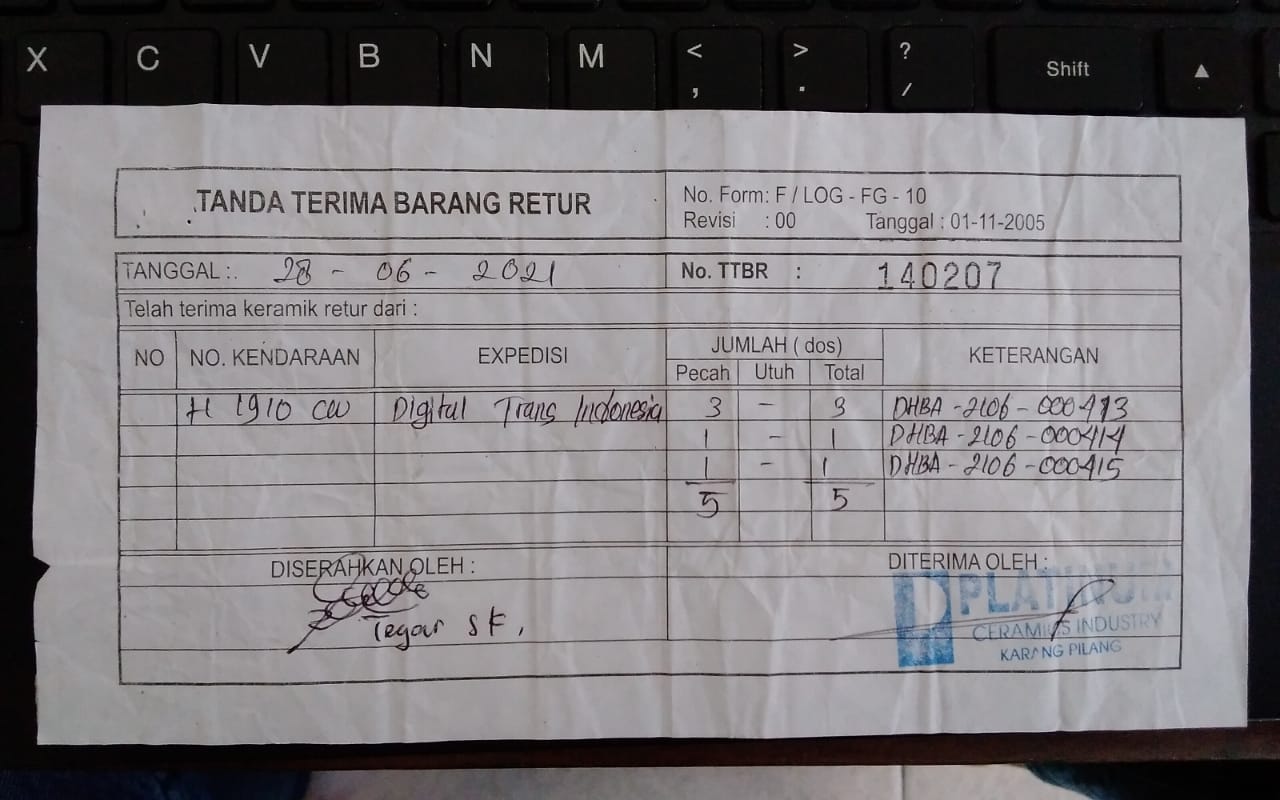 X C V B N M < , > . ? / Shift ▲
TANDA TERIMA BARANG RETUR
No. Form: F / LOG - FG - 10
Revisi : 00 Tanggal : 01-11-2005
TANGGAL : 28 - 06 - 2021 No. TTBR : 140207
Telah terima keramik retur dari :
NO NO. KENDARAAN EXPEDISI JUMLAH ( dos) KETERANGAN
Pecah Utuh Total
H 1910 CW Digital Trans Indonesia 3 - 3 DHBA - 2106 - 000413
1 - 1 DHBA - 2106 - 000414
1 - 1 DHBA - 2106 - 000415
5 5
DISERAHKAN OLEH : DITERIMA OLEH :
PLATINUM
CERAMICS INDUSTRY
KARANG PILANG
Tegar